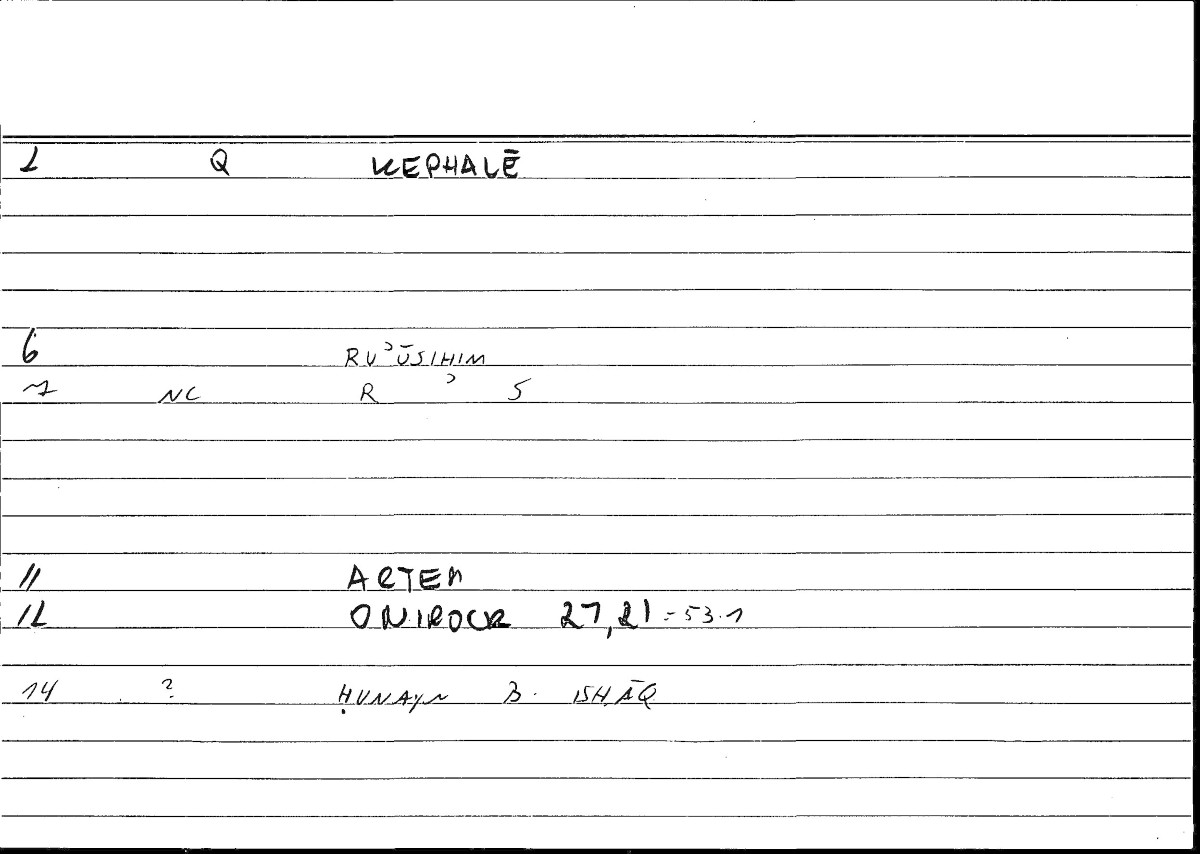 1 Q KEPHALĒ
6 RUʾŪSIHIM
7 NC R ʾ S
11 ARTEM
12 ONIROCR 27,21 = 53.1
14 ? ḤUNAYN B. ISḤĀQ